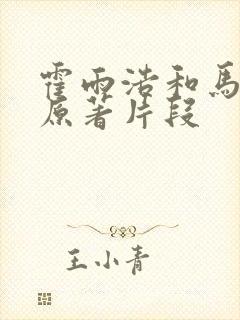 霍雨浩和馬
原著片段
王小青